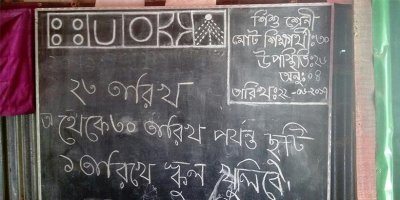 শিশু শ্রেণী
মোট শিক্ষার্থী:৩০
উপস্থিতি:২৬
অনু:০৪
তারিখ:২২-০৬-২০১৭
২৩ তারিখ
থেকে ৩০ তারিখ পর্যন্ত ছুটি
১ তারিখে স্কুল খুলিবে।